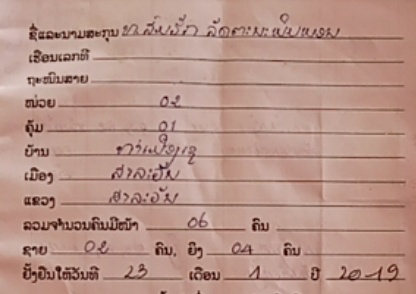 ຊື່ແລະນາມສະກຸນ ທ ສົມຣັກ
ເຮືອນເລກທີ
ຖະໜົນສາຍ
ໜ່ວຍ 02
ຄຸ້ມ 01
ບ້ານ
ເມືອງ ສາລະວັນ
ແຂວງ ສາລະວັນ
ລວມຈຳນວນຄົນມີໜ້າ 06 ຄົນ
ຊາຍ 02 ຄົນ, ຍິງ 04 ຄົນ
ຢັ້ງຢືນໃຫ້ວັນທີ 23 ເດືອນ 1 ປີ 2019